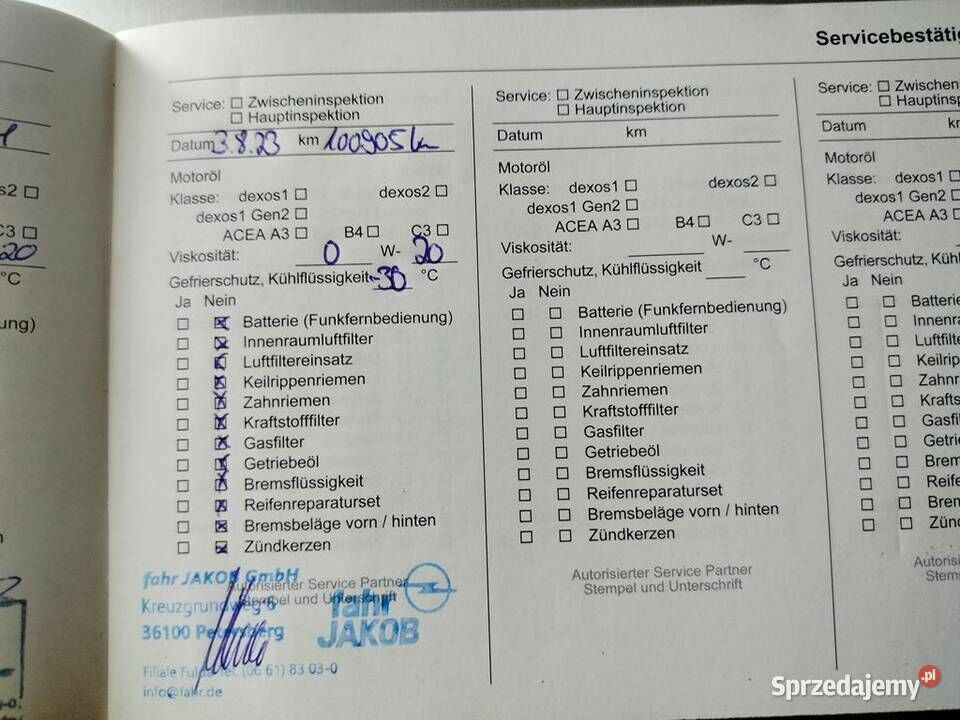 Servicebestätig
Service: Zwischeninspektion
Hauptinspektion
Datum 3.8.23 km 100905 km
Motoröl
Klasse: dexos1 dexos2
dexos1 Gen2
ACEA A3 B4 C3
Viskosität: 0 W- 20
Gefrierschutz, Kühlflüssigkeit -30 °C
Ja Nein
Batterie (Funkfernbedienung)
Innenraumluftfilter
Luftfiltereinsatz
Keilrippenriemen
Zahnriemen
Kraftstofffilter
Gasfilter
Getriebeöl
Bremsflüssigkeit
Reifenreparaturset
Bremsbeläge vorn / hinten
Zündkerzen
Autorisierter Service Partner
Stempel und Unterschrift
fahr JAKOB GmbH
Kreuzgrundweg 6
36100 Petersberg
Filiale Fulda Tel. (06 61) 83 03-0
info@fahr.de
fahr
JAKOB
Service: Zwischeninspektion
Hauptinspektion
Datum km
Motoröl
Klasse: dexos1 dexos2
dexos1 Gen2
ACEA A3 B4 C3
Viskosität: W-
Gefrierschutz, Kühlflüssigkeit °C
Ja Nein
Batterie (Funkfernbedienung)
Innenraumluftfilter
Luftfiltereinsatz
Keilrippenriemen
Zahnriemen
Kraftstofffilter
Gasfilter
Getriebeöl
Bremsflüssigkeit
Reifenreparaturset
Bremsbeläge vorn / hinten
Zündkerzen
Autorisierter Service Partner
Stempel und Unterschrift
Service: Zwischeninspe
Hauptinsp
Datum k
Motoröl
Klasse: dexos1
dexos1 Gen2
ACEA A3
Viskosität:
Gefrierschutz, Kühl
Ja Nein
Batterie
Innenra
Luftfilte
Keilripp
Zahnr
Krafts
Gasfil
Getri
Brem
Reife
Bren
Zünd
Autoris
Stem
s2
C3
20
°C
ung)
n
Sprzedajemy.pl